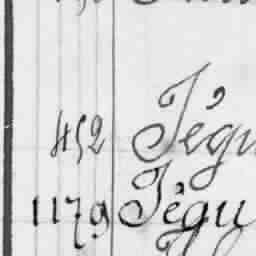 452 Tégu
1179 Tégu